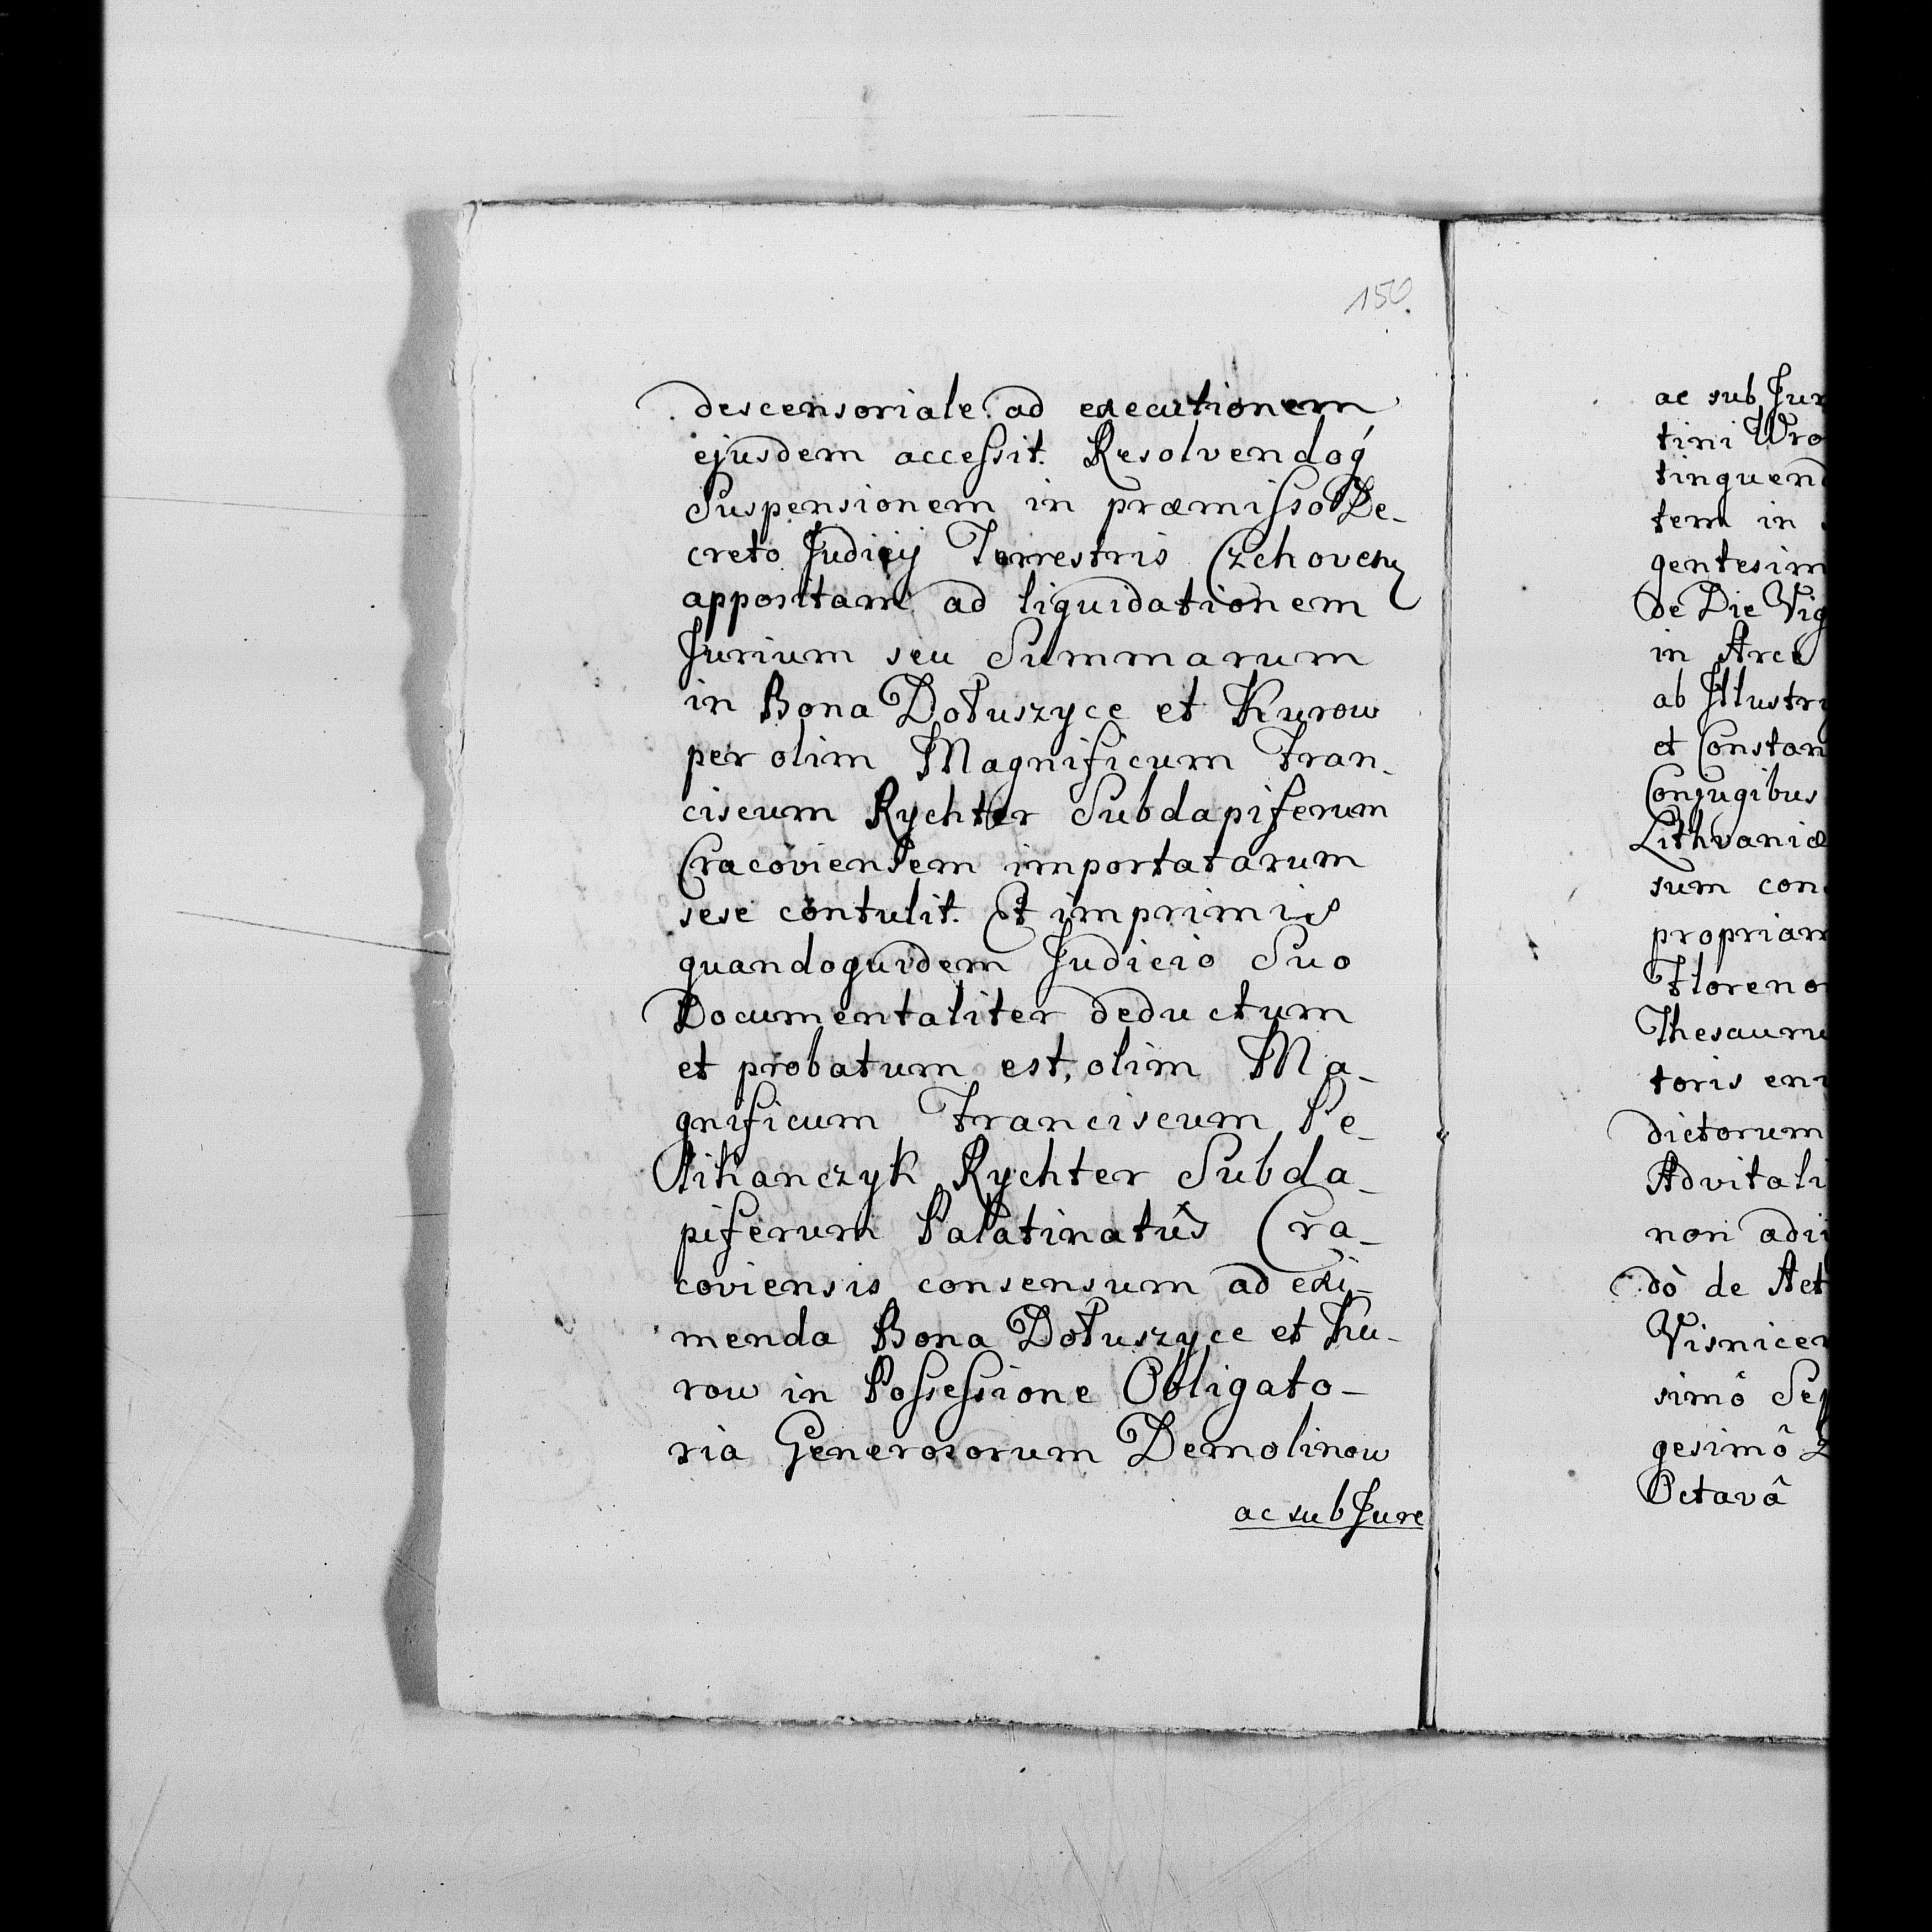 150.
descensoriale ad executionem
ejusdem accessit. Resolvendoq́
Suspensionem in præmisso De-
creto Judicij Terrestris Czchoven
appositam ad liquidationem
Jurium seu Summarum
in Bona Dołuszyce et Kurow
per olim Magnificum Fran-
ciscum Rychter Subdapiferum
Cracoviensem importatarum
sese contulit. Et imprimis
quandoquidem Judicio Suo
Documentaliter deductum
et probatum est, olim Ma-
gnificum Franciscum Pe-
likanczyk Rychter Subda-
piferum Palatinatûs Cra-
coviensis consensum ad exi-
menda Bona Dołuszyce et Ku-
row in Possessione Obligato-
ria Generosorum Demolinow
ac sub Jure
ac sub Jur
tini Wro
tinquend
tem in
gentesim
de Die Vig
in Arce
ab Illustri
et Constan
Conjugibus
Lithvaniæ
sum con
propriam
Floreno
Thesauru
toris
dictorum
Advitali
non adii
dô de Act
Visnicen
simô Sep
gesimô
Octavâ